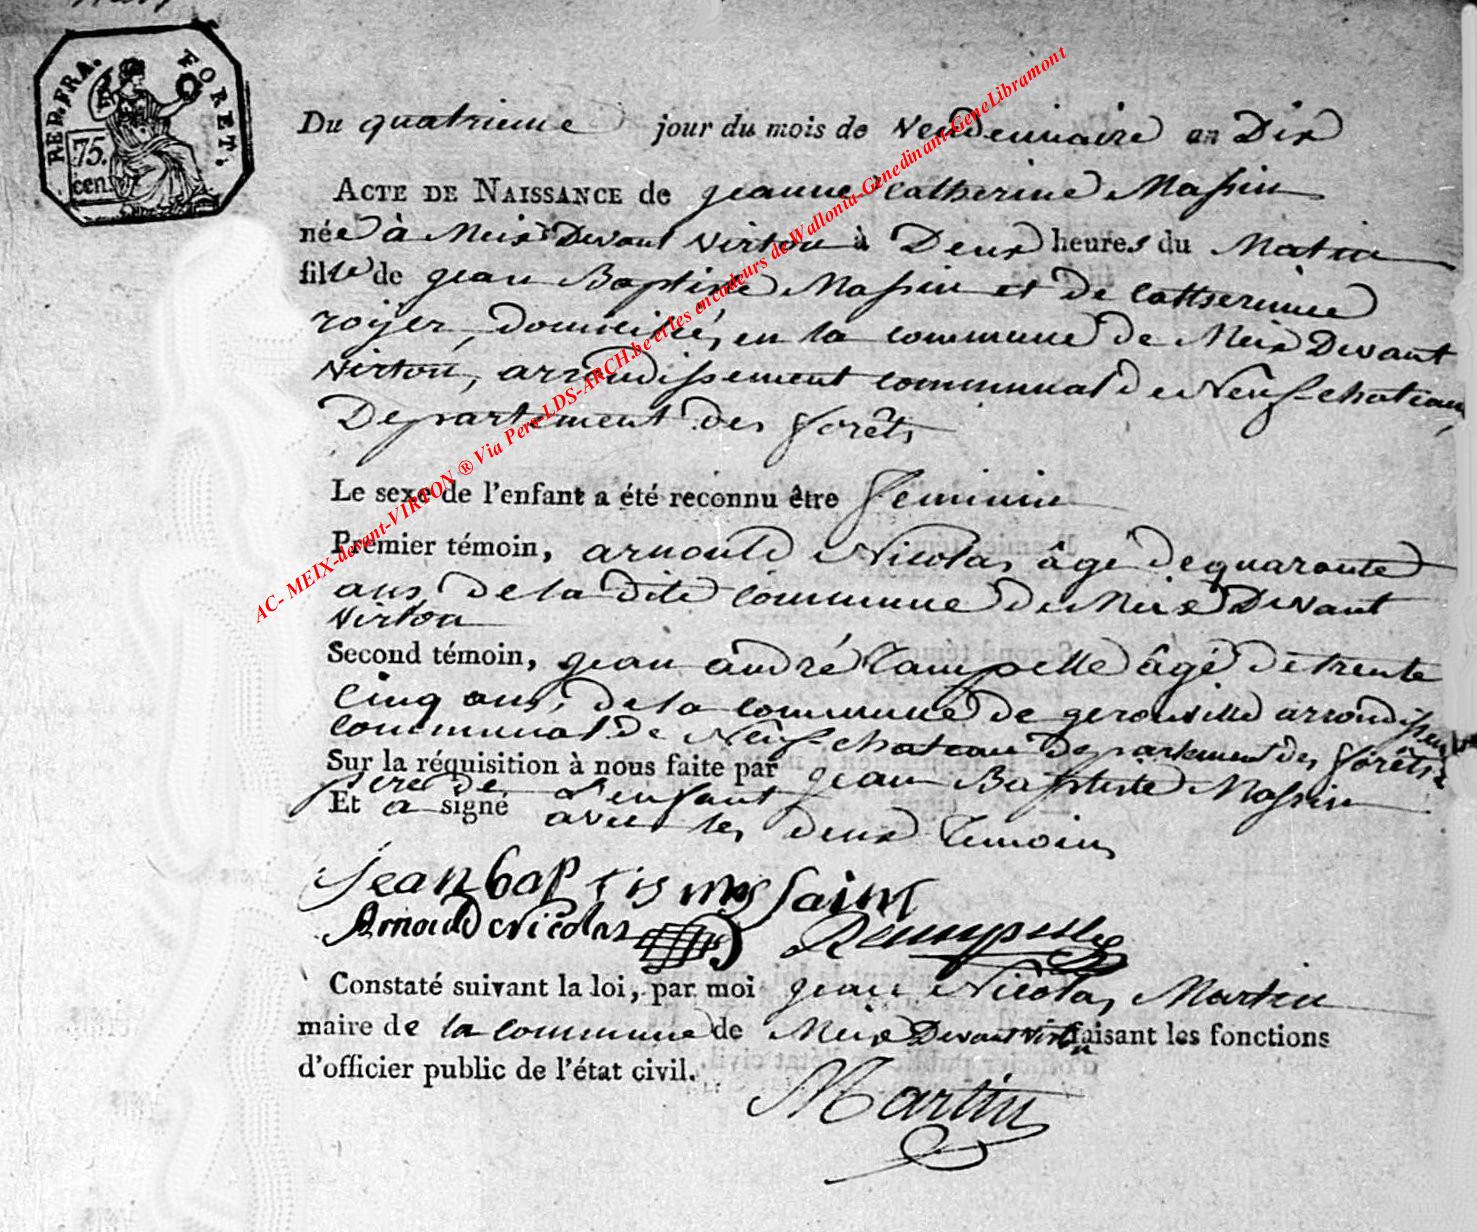 REP. FRA. FORET.
75.
cen.
Du quatrieme jour du mois de Vendemiaire an Dix
ACTE DE NAISSANCE de jeanne Catherine Massin
née à Meix Devant Virton à Deux heures du Matin
fille de jean Baptiste Massin et de Catherine
royer, domicilié, en la commune de Meix Devant
Virton, arrondissement communal de Neufchateau,
Departement des forêts
Le sexe de l'enfant a été reconnu être feminin
Premier témoin, arnould Nicolas âgé de quarante
ans, de la dite commune de Meix Devant
Virton
Second témoin, jean andré Campelle âgé de trente
Cinq ans, de la commune de gerouville arrondissement
communal de Neufchateau departement des forêts
Sur la réquisition à nous faite par jean Baptiste Massin
père de L'enfant
Et a signé avec les deux temoins
jean bap tis mas saint
Arnould Nicolas
Constaté suivant la loi, par moi jean Nicolas Martin
maire de la commune de Meix Devant Virton faisant les fonctions
d'officier public de l'état civil.
Martin
AC- MEIX-devant-VIRTON ® Via Pere-LDS-ARCH.be et les encodeurs de Wallonia-Genedinant-GeneLibramont